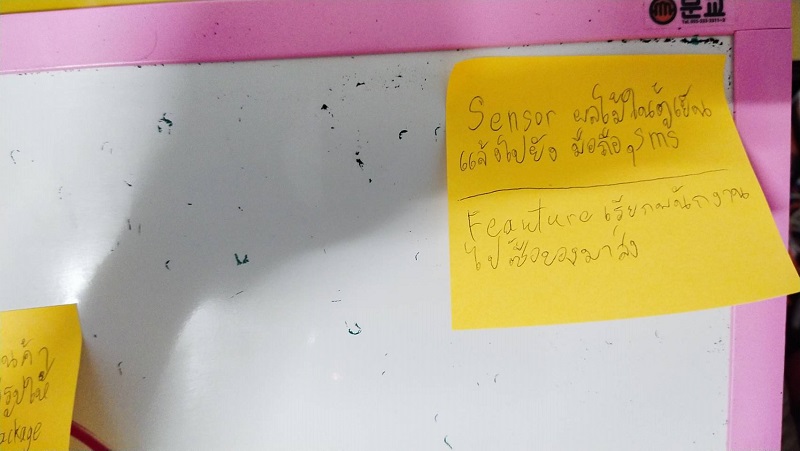 문교
Sensor ผลไม้ในตู้เย็น
แจ้งไปยัง มือถือ, SMS
Feauture เรียกพนักงาน
ไปซื้อของมาส่ง
นค้า
รูปให้
ackage